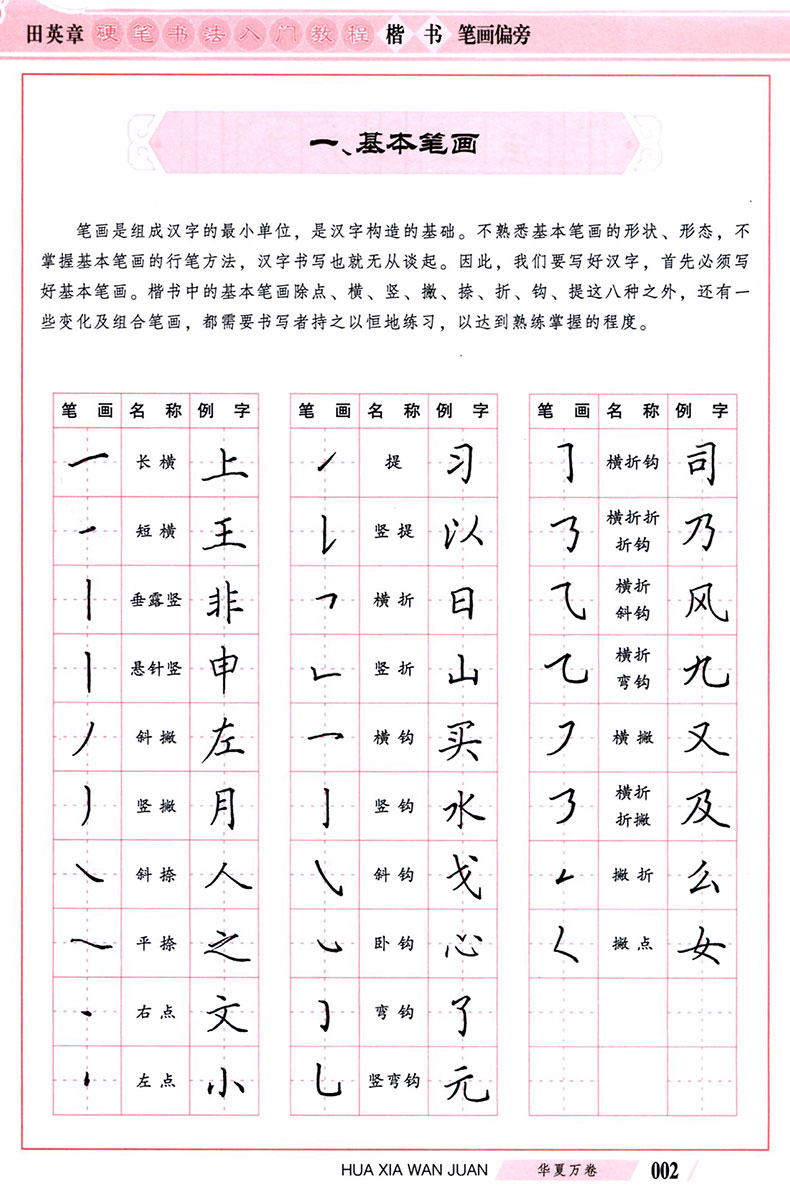 田英章 硬笔书法入门教程 楷书 笔画偏旁
一、基本笔画
笔画是组成汉字的最小单位，是汉字构造的基础。不熟悉基本笔画的形状、形态，不
掌握基本笔画的行笔方法，汉字书写也就无从谈起。因此，我们要写好汉字，首先必须写
好基本笔画。楷书中的基本笔画除点、横、竖、撇、捺、折、钩、提这八种之外，还有一
些变化及组合笔画，都需要书写者持之以恒地练习，以达到熟练掌握的程度。
笔画 名称 例字
长横 上
短横 王
垂露竖 非
悬针竖 申
斜撇 左
竖撇 月
斜捺 人
平捺 之
右点 文
左点 小
笔画 名称 例字
提 习
竖提 以
横折 日
竖折 山
横钩 买
竖钩 水
斜钩 戈
卧钩 心
弯钩 了
竖弯钩 元
笔画 名称 例字
横折钩 司
横折折
折钩 乃
横折
斜钩 风
横折
弯钩 九
横撇 又
横折
折撇 及
撇折 么
撇点 女
HUA XIA WAN JUAN 华夏万卷 002